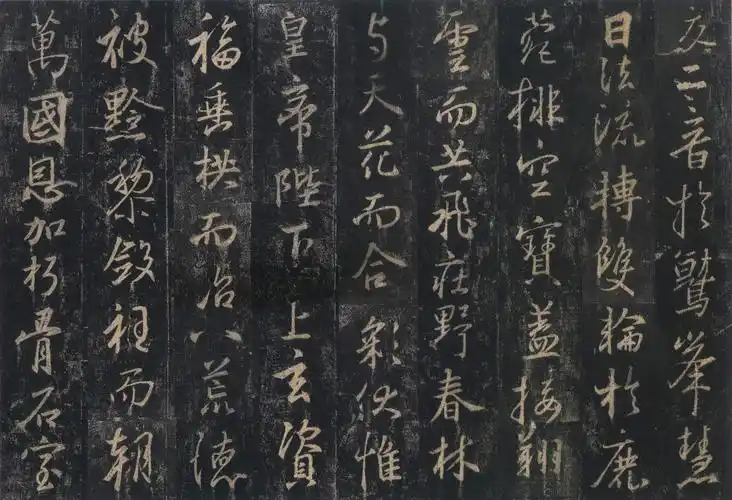 夾二音於鷲峯慧
日法流轉雙輪於鹿
菀排空寶蓋接翔
雲而共飛庄野春林
与天花而合彩伏惟
皇帝陛下上玄資
福垂拱而治八荒德
被黔黎斂衽而朝
萬國恩加朽骨石室